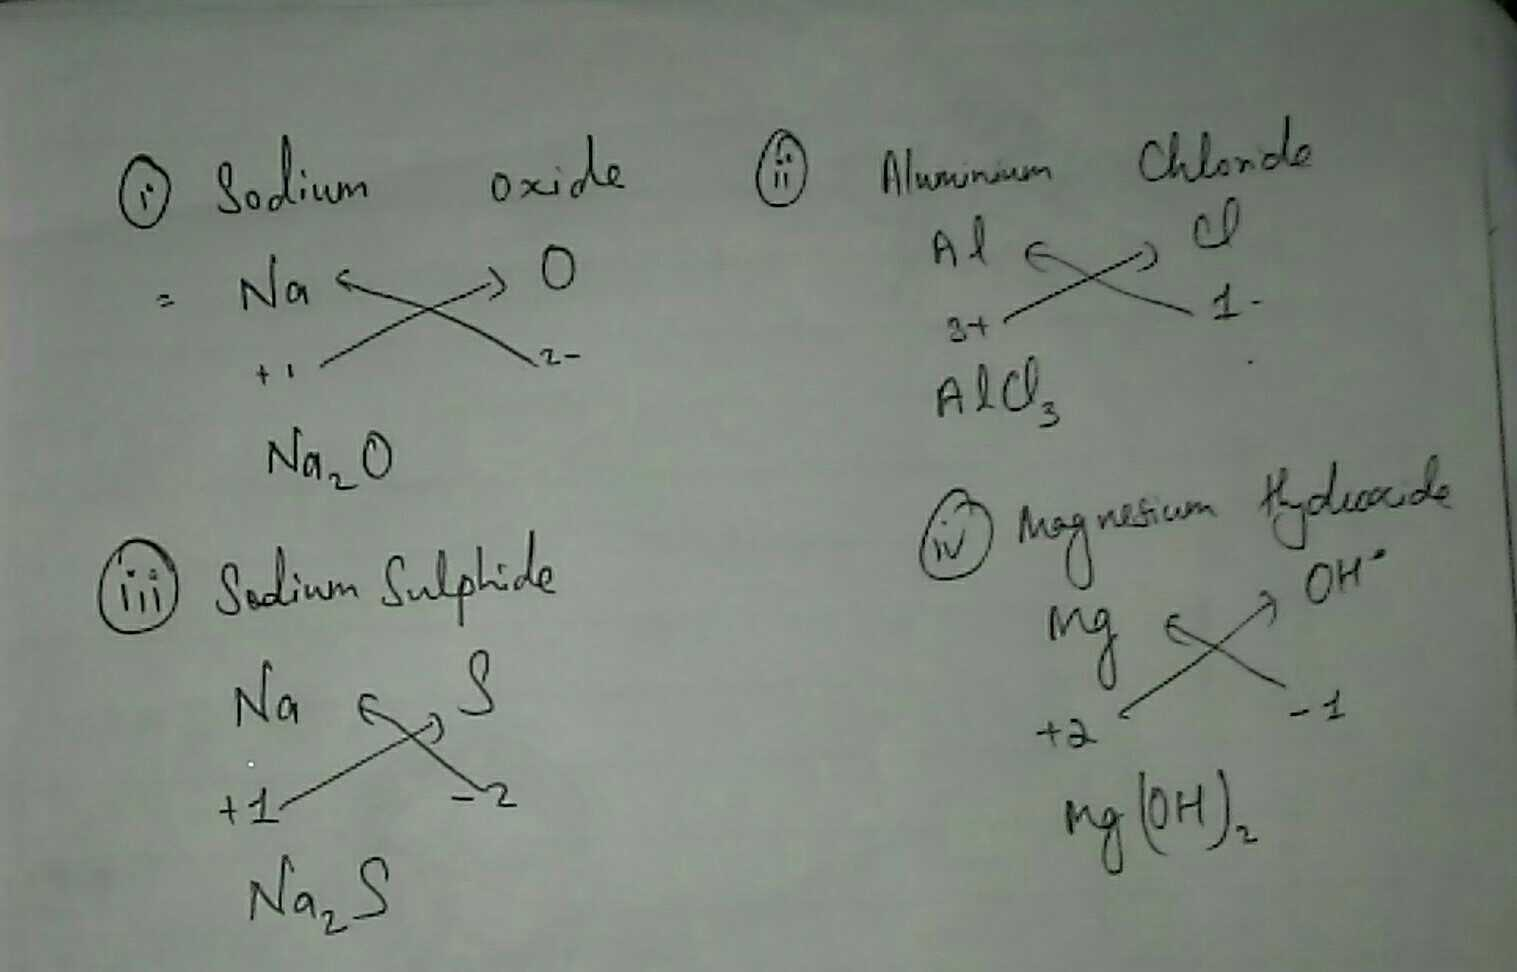 (i) Sodium oxide
= Na O
+1 2-
Na₂O
(ii) Aluminium Chloride
Al Cl
3+ 1-
AlCl₃
(iii) Sodium Sulphide
Na S
+1 -2
Na₂S
(iv) Magnesium Hydroxide
Mg OH⁻
+2 -1
Mg(OH)₂